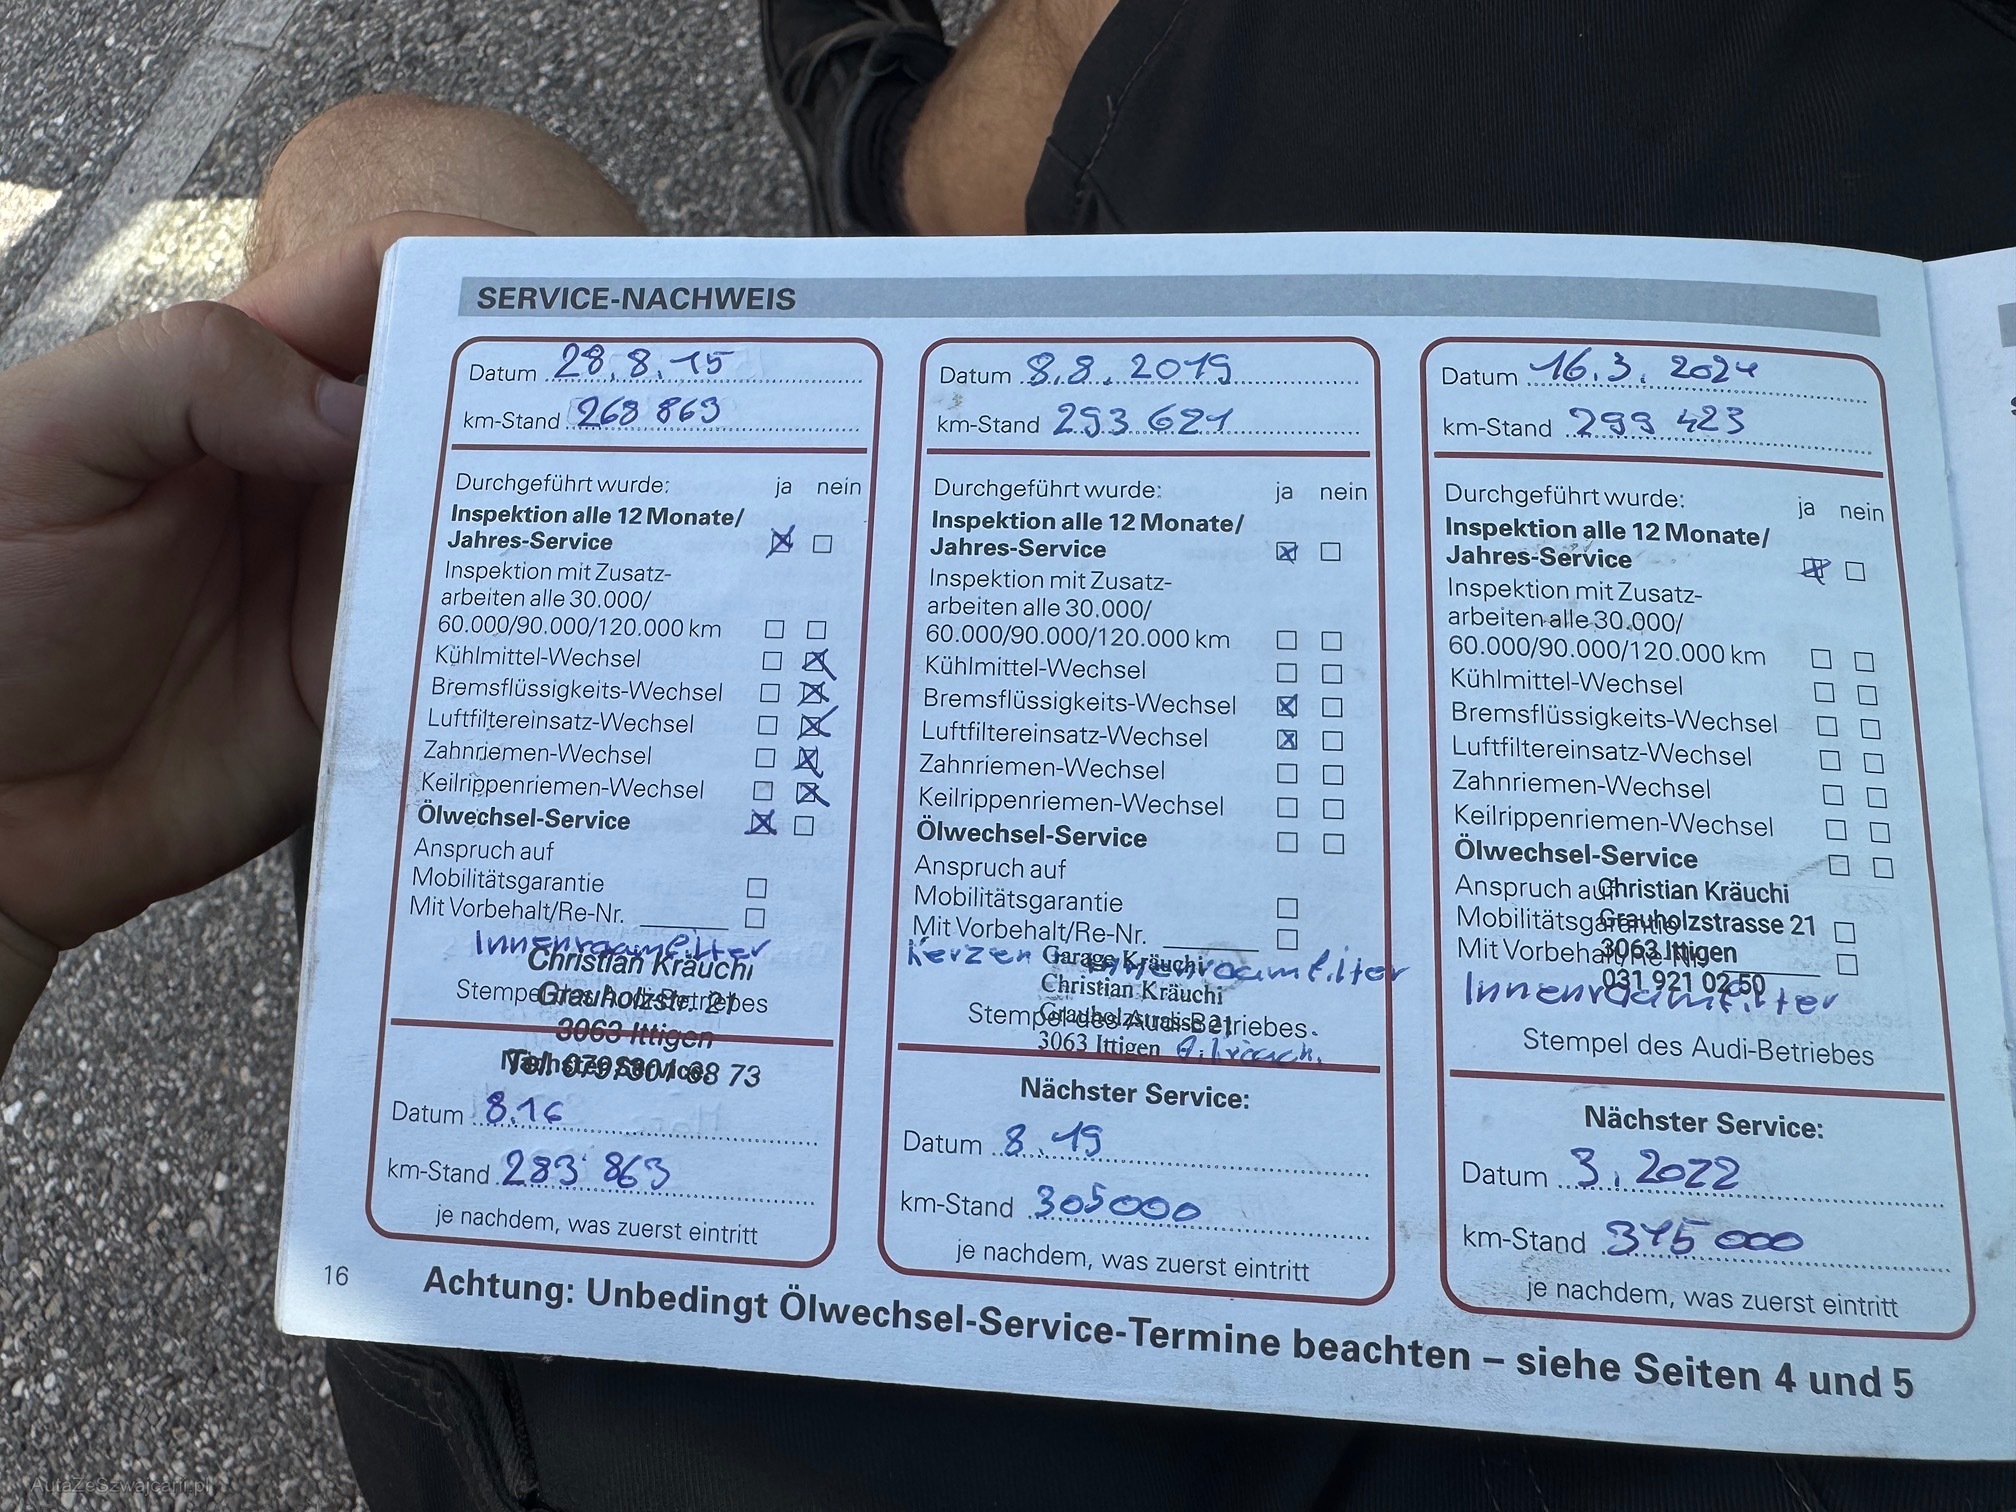 SERVICE-NACHWEIS
Datum 28.8.15
km-Stand 268 863
Durchgeführt wurde: ja nein
Inspektion alle 12 Monate/
Jahres-Service
Inspektion mit Zusatz-
arbeiten alle 30.000/
60.000/90.000/120.000 km
Kühlmittel-Wechsel
Bremsflüssigkeits-Wechsel
Luftfiltereinsatz-Wechsel
Zahnriemen-Wechsel
Keilrippenriemen-Wechsel
Ölwechsel-Service
Anspruch auf
Mobilitätsgarantie
Mit Vorbehalt/Re-Nr.
Innenraumfilter
Christian Kräuchi
Stempel des Audi-Betriebes
Grauholzstr. 21
3063 Ittigen
Nächster Service:
Datum 8.16
km-Stand 283 863
je nachdem, was zuerst eintritt
Datum 8.8.2019
km-Stand 293 621
Durchgeführt wurde: ja nein
Inspektion alle 12 Monate/
Jahres-Service
Inspektion mit Zusatz-
arbeiten alle 30.000/
60.000/90.000/120.000 km
Kühlmittel-Wechsel
Bremsflüssigkeits-Wechsel
Luftfiltereinsatz-Wechsel
Zahnriemen-Wechsel
Keilrippenriemen-Wechsel
Ölwechsel-Service
Anspruch auf
Mobilitätsgarantie
Mit Vorbehalt/Re-Nr.
Kerzen Innenraumfilter
Garage Kräuchi
Christian Kräuchi
Stempel des Audi-Betriebes
Grauholzstrasse 21
3063 Ittigen
Nächster Service:
Datum 8.19
km-Stand 305000
je nachdem, was zuerst eintritt
Datum 16.3.
km-Stand 299 423
Durchgeführt wurde: ja nein
Inspektion alle 12 Monate/
Jahres-Service
Inspektion mit Zusatz-
arbeiten alle 30.000/
60.000/90.000/120.000 km
Kühlmittel-Wechsel
Bremsflüssigkeits-Wechsel
Luftfiltereinsatz-Wechsel
Zahnriemen-Wechsel
Keilrippenriemen-Wechsel
Ölwechsel-Service
Anspruch auf
Christian Kräuchi
Mobilitätsgarantie
Grauholzstrasse 21
Mit Vorbehalt/Re-Nr.
3063 Ittigen
031 921 02 50
Innenraumfilter
Stempel des Audi-Betriebes
Nächster Service:
Datum 3.2022
km-Stand 315 000
je nachdem, was zuerst eintritt
16
Achtung: Unbedingt Ölwechsel-Service-Termine beachten – siehe Seiten 4 und 5
AutaZeSzwajcarii.pl